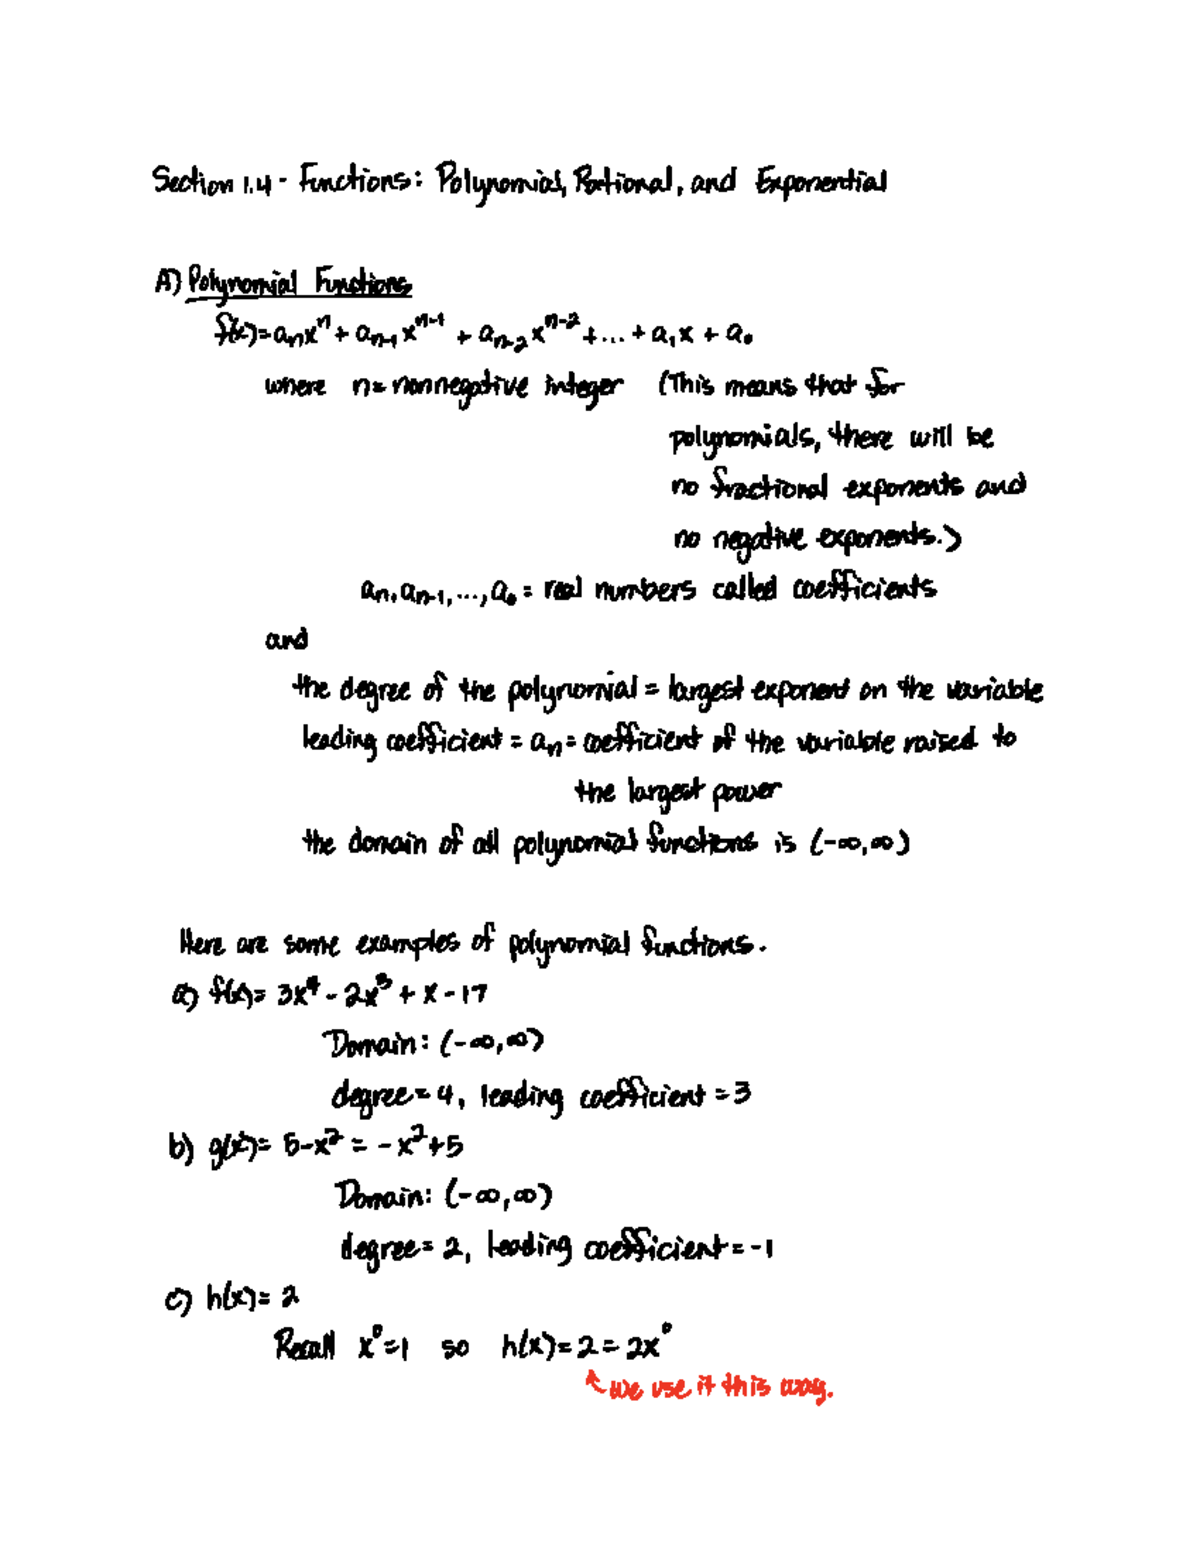 Section 1.4 - Functions: Polynomial, Rational, and Exponential
A) Polynomial Functions
f(x) = aₙxⁿ + aₙ₋₁xⁿ⁻¹ + aₙ₋₂xⁿ⁻² + ... + a₁x + a₀
where n = nonnegative integer (This means that for
polynomials, there will be
no fractional exponents and
no negative exponents.)
aₙ, aₙ₋₁, ..., a₀ = real numbers called coefficients
and
the degree of the polynomial = largest exponent on the variable
leading coefficient = aₙ = coefficient of the variable raised to
the largest power
the domain of all polynomial functions is (-∞, ∞)
Here are some examples of polynomial functions.
a) f(x) = 3x⁴ - 2x³ + x - 17
Domain: (-∞, ∞)
degree = 4, leading coefficient = 3
b) g(x) = 5 - x² = -x² + 5
Domain: (-∞, ∞)
degree = 2, leading coefficient = -1
c) h(x) = 2
Recall x⁰ = 1 so h(x) = 2 = 2x⁰
we use it this way.